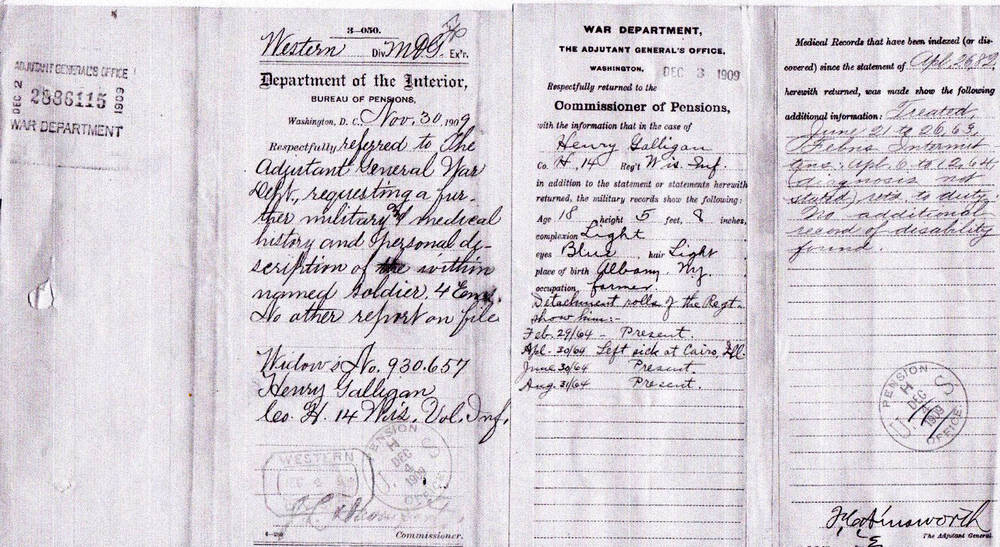 ADJUTANT GENERAL'S OFFICE
DEC 2 2886115 1909
WAR DEPARTMENT
3—050.
Western Div. Ex'r.
Department of the Interior,
BUREAU OF PENSIONS,
Washington, D. C., Nov. 30, 1909
Respectfully referred to The
Adjutant General War
Dept., requesting a fur-
ther military & medical
history and personal de-
scription of the within
named soldier. 4 Encs.
No other report on file
Widow's No. 930.657
Henry Galligan
Co. H. 14 Wis. Vol. Inf.
WESTERN
U.S. PENSION OFFICE
DEC 4 1909
Commissioner.
WAR DEPARTMENT,
THE ADJUTANT GENERAL'S OFFICE,
WASHINGTON, DEC 3 1909
Respectfully returned to the
Commissioner of Pensions,
with the information that in the case of
Henry Galligan
Co. H, 14 Reg't Wis. Inf.
in addition to the statement or statements herewith
returned, the military records show the following:
Age 18 height 5 feet, 8 inches,
complexion Light
eyes Blue, hair Light
place of birth Albany, N.Y.
occupation, farmer.
Detachment rolls of the Regt.
show him:-
Feb. 29/64 Present
Apl. 30/64 Left sick at Cairo, Ill.
June 30/64 Present.
Aug. 31/64 Present.
Medical Records that have been indexed (or dis-
covered) since the statement of Apl. 26 82,
herewith returned, was made show the following
additional information: Treated,
June 21 to 26, 63,
Febris Intermit
tens; Apl. 6 to 12, 64,
diagnosis not
stated, retd. to duty.
No additional
record of disability
found.
U.S. PENSION OFFICE
DEC 4 1909
F C Ainsworth
The Adjutant General